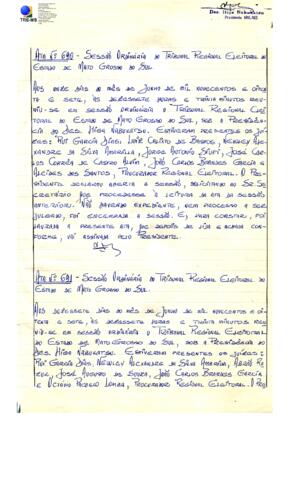 TRE-MS
Des. Higa Nabukatsu
Presidente TRE/MS
ATA Nº 690 - SESSÃO ORDINÁRIA DO TRIBUNAL REGIONAL ELEITORAL DO
ESTADO DE MATO GROSSO DO SUL.
AOS ONZE DIAS DO MÊS DE JUNHO DE MIL NOVECENTOS E OITEN
TA E SETE, ÀS DEZESSETE HORAS E TRINTA MINUTOS REU
NIU-SE EM SESSÃO ORDINÁRIA O TRIBUNAL REGIONAL ELEI
TORAL DO ESTADO DE MATO GROSSO DO SUL, SOB A PRESIDÊN
CIA DO DES. HIGA NABUKATSU. ESTIVERAM PRESENTES OS JUÍ
ZES: RUI GARCIA DIAS, LUIZ CARLOS DE BARROS, NEWLEY ALE
XANDRE DA SILVA AMARILLA, JORGE ANTONIO SIUFI, JOSÉ CAR
LOS CORRÊA DE CASTRO ALVIM, JOSÉ CARLOS BRANDES GARCIA E
ALCIDES DOS SANTOS, PROCURADOR REGIONAL ELEITORAL. O PRE
SIDENTE DECLAROU ABERTA A SESSÃO, SOLICITANDO AO SR. SE
CRETÁRIO QUE PROCEDESSE À LEITURA DA ATA DA SESSÃO
ANTERIOR. NÃO HAVENDO EXPEDIENTE, NEM PROCESSO A SER
JULGADO, FOI ENCERRADA A SESSÃO. E, PARA CONSTAR, FOI
LAVRADA A PRESENTE ATA, QUE DEPOIS DE LIDA E ACHADA CON
FORME, VAI ASSINADA PELO PRESIDENTE.
ATA Nº 691 - SESSÃO ORDINÁRIA DO TRIBUNAL REGIONAL ELEITORAL DO
ESTADO DE MATO GROSSO DO SUL.
AOS DEZESSETE DIAS DO MÊS DE JUNHO DE MIL NOVECENTOS E
OITENTA E SETE, ÀS DEZESSETE HORAS E TRINTA MINUTOS REU
NIU-SE EM SESSÃO ORDINÁRIA O TRIBUNAL REGIONAL ELEITORAL
DO ESTADO DE MATO GROSSO DO SUL, SOB A PRESIDÊNCIA
DO DES. HIGA NABUKATSU. ESTIVERAM PRESENTES OS JUÍZES:
RUI GARCIA DIAS, NEWLEY ALEXANDRE DA SILVA AMARILLA,
JOSÉ AUGUSTO DE SOUZA, JOSÉ CARLOS BRANDES GARCIA
E PROCURADOR REGIONAL ELEITORAL. O PRE